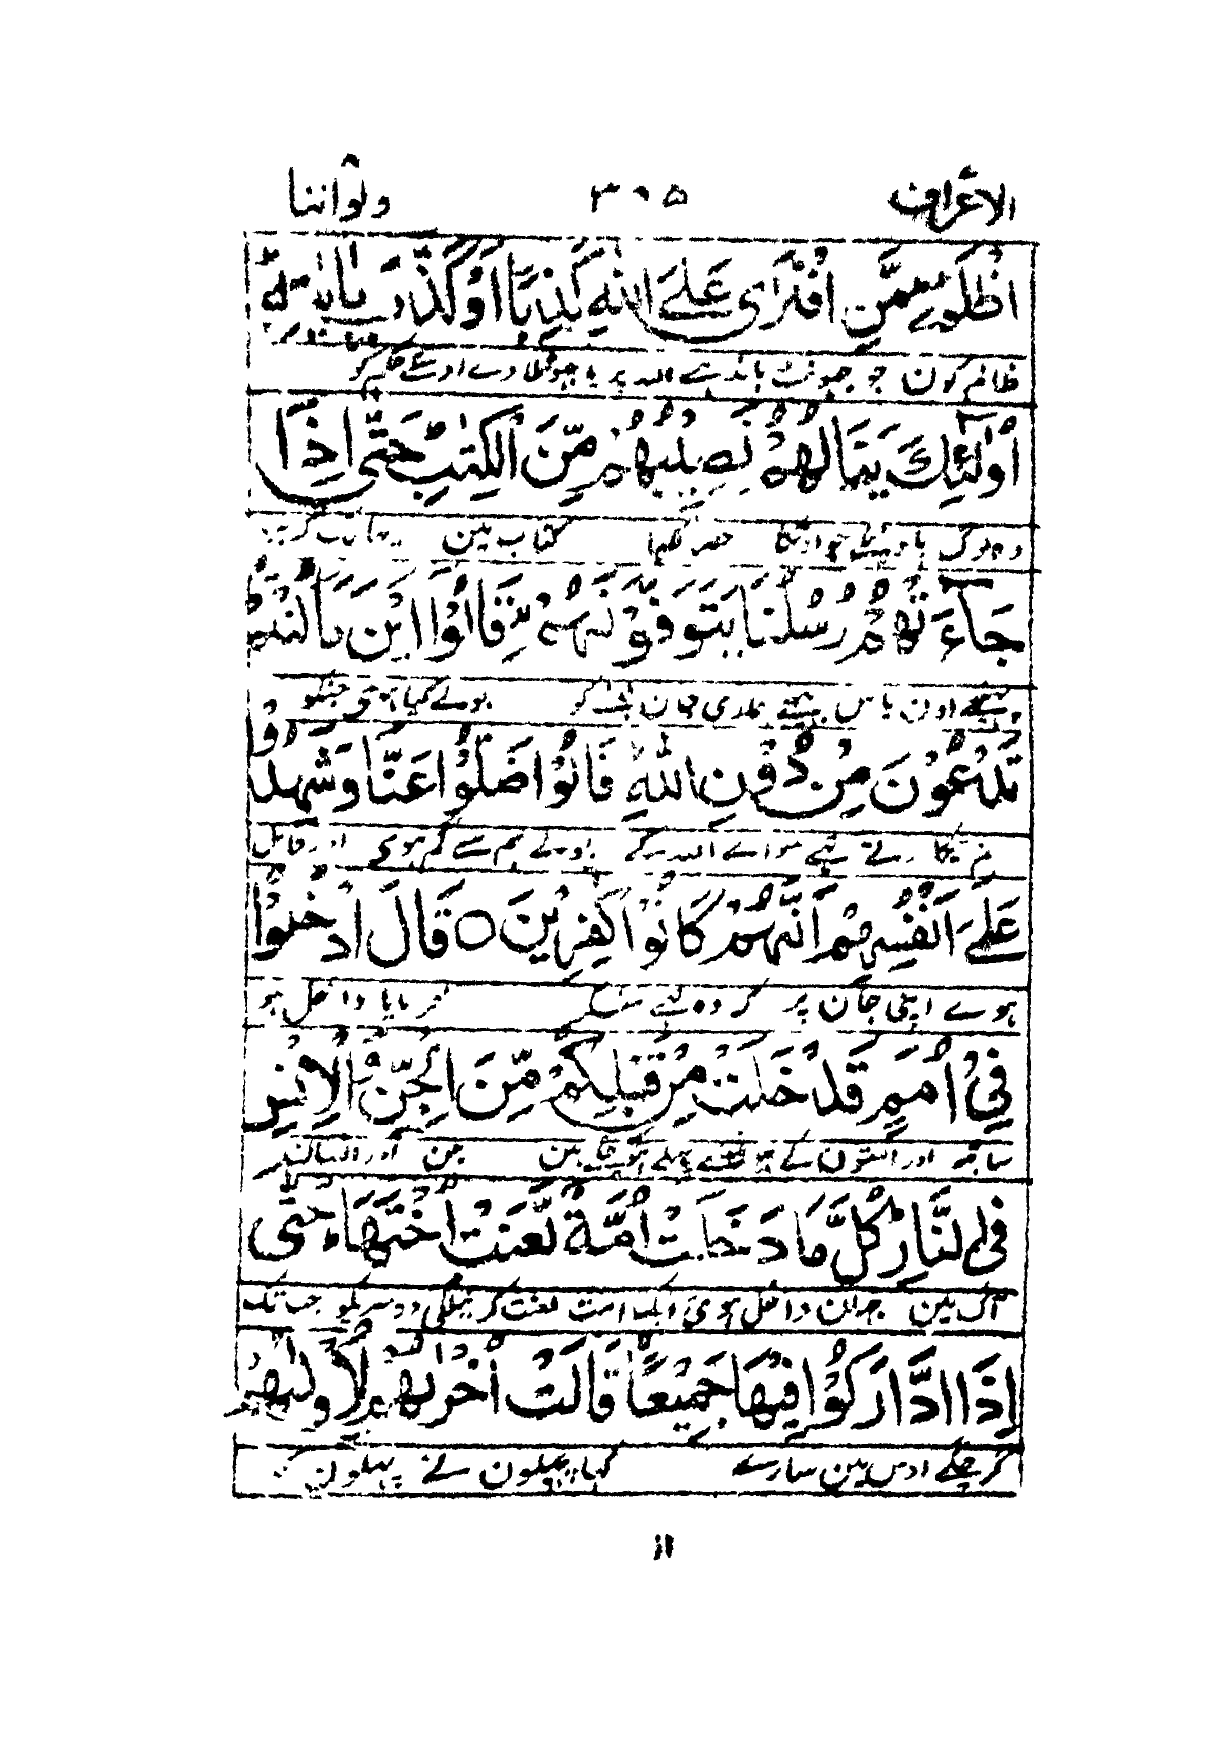 الاعراف ٣٠٥ ولواننا
اَظْلَمُ مِمَّنِ افْتَرٰى عَلَى اللّٰهِ كَذِبًا اَوْ كَذَّبَ بِاٰيٰتِهٖ
ظالم کون جو جھونٹ باندہے اللہ پر یا جھوٹلا دے اوسکے حکم کو
اُولٰٓئِكَ يَنَالُهُمْ نَصِيْبُهُمْ مِّنَ الْكِتٰبِ حَتّٰى اِذَا
وہ لوگ پاوینگے جو اونکا حصہ لکھا کتاب مین
جَآءَتْهُمْ رُسُلُنَا يَتَوَفَّوْنَهُمْ قَالُوْا اَيْنَ مَا كُنْتُمْ
پہنچے اون پاس بھیجے ہماری جان لینے کو بولے کیا ہوی جنکو
تَدْعُوْنَ مِنْ دُوْنِ اللّٰهِ قَالُوْا ضَلُّوْا عَنَّا وَشَهِدُوْا
تم پکارتے تہے سواے اللہ کے بولے ہم سے گم ہوی اور قائل
عَلٰى اَنْفُسِهِمْ اَنَّهُمْ كَانُوْا كٰفِرِيْنَ ○ قَالَ ادْخُلُوْا
ہوے اپنی جان پر کہ وہ تہے منکر فرمایا داخل ہو
فِيْ اُمَمٍ قَدْ خَلَتْ مِنْ قَبْلِكُمْ مِّنَ الْجِنِّ وَالْاِنْسِ
ساتھ اور امتون کے جو تمسے پہلے ہوچکے ہین جن اور انسان
فِى النَّارِ كُلَّمَا دَخَلَتْ اُمَّةٌ لَّعَنَتْ اُخْتَهَا حَتّٰى
آگ مین جہان داخل ہوی ایک امت لعنت کرنیلگی دوسریکو جب تک
اِذَا ادَّارَكُوْا فِيْهَا جَمِيْعًا قَالَتْ اُخْرٰىهُمْ لِاُوْلٰىهُمْ
گر چکے اوس مین سارے کہا پچھلون نے پہلون کو